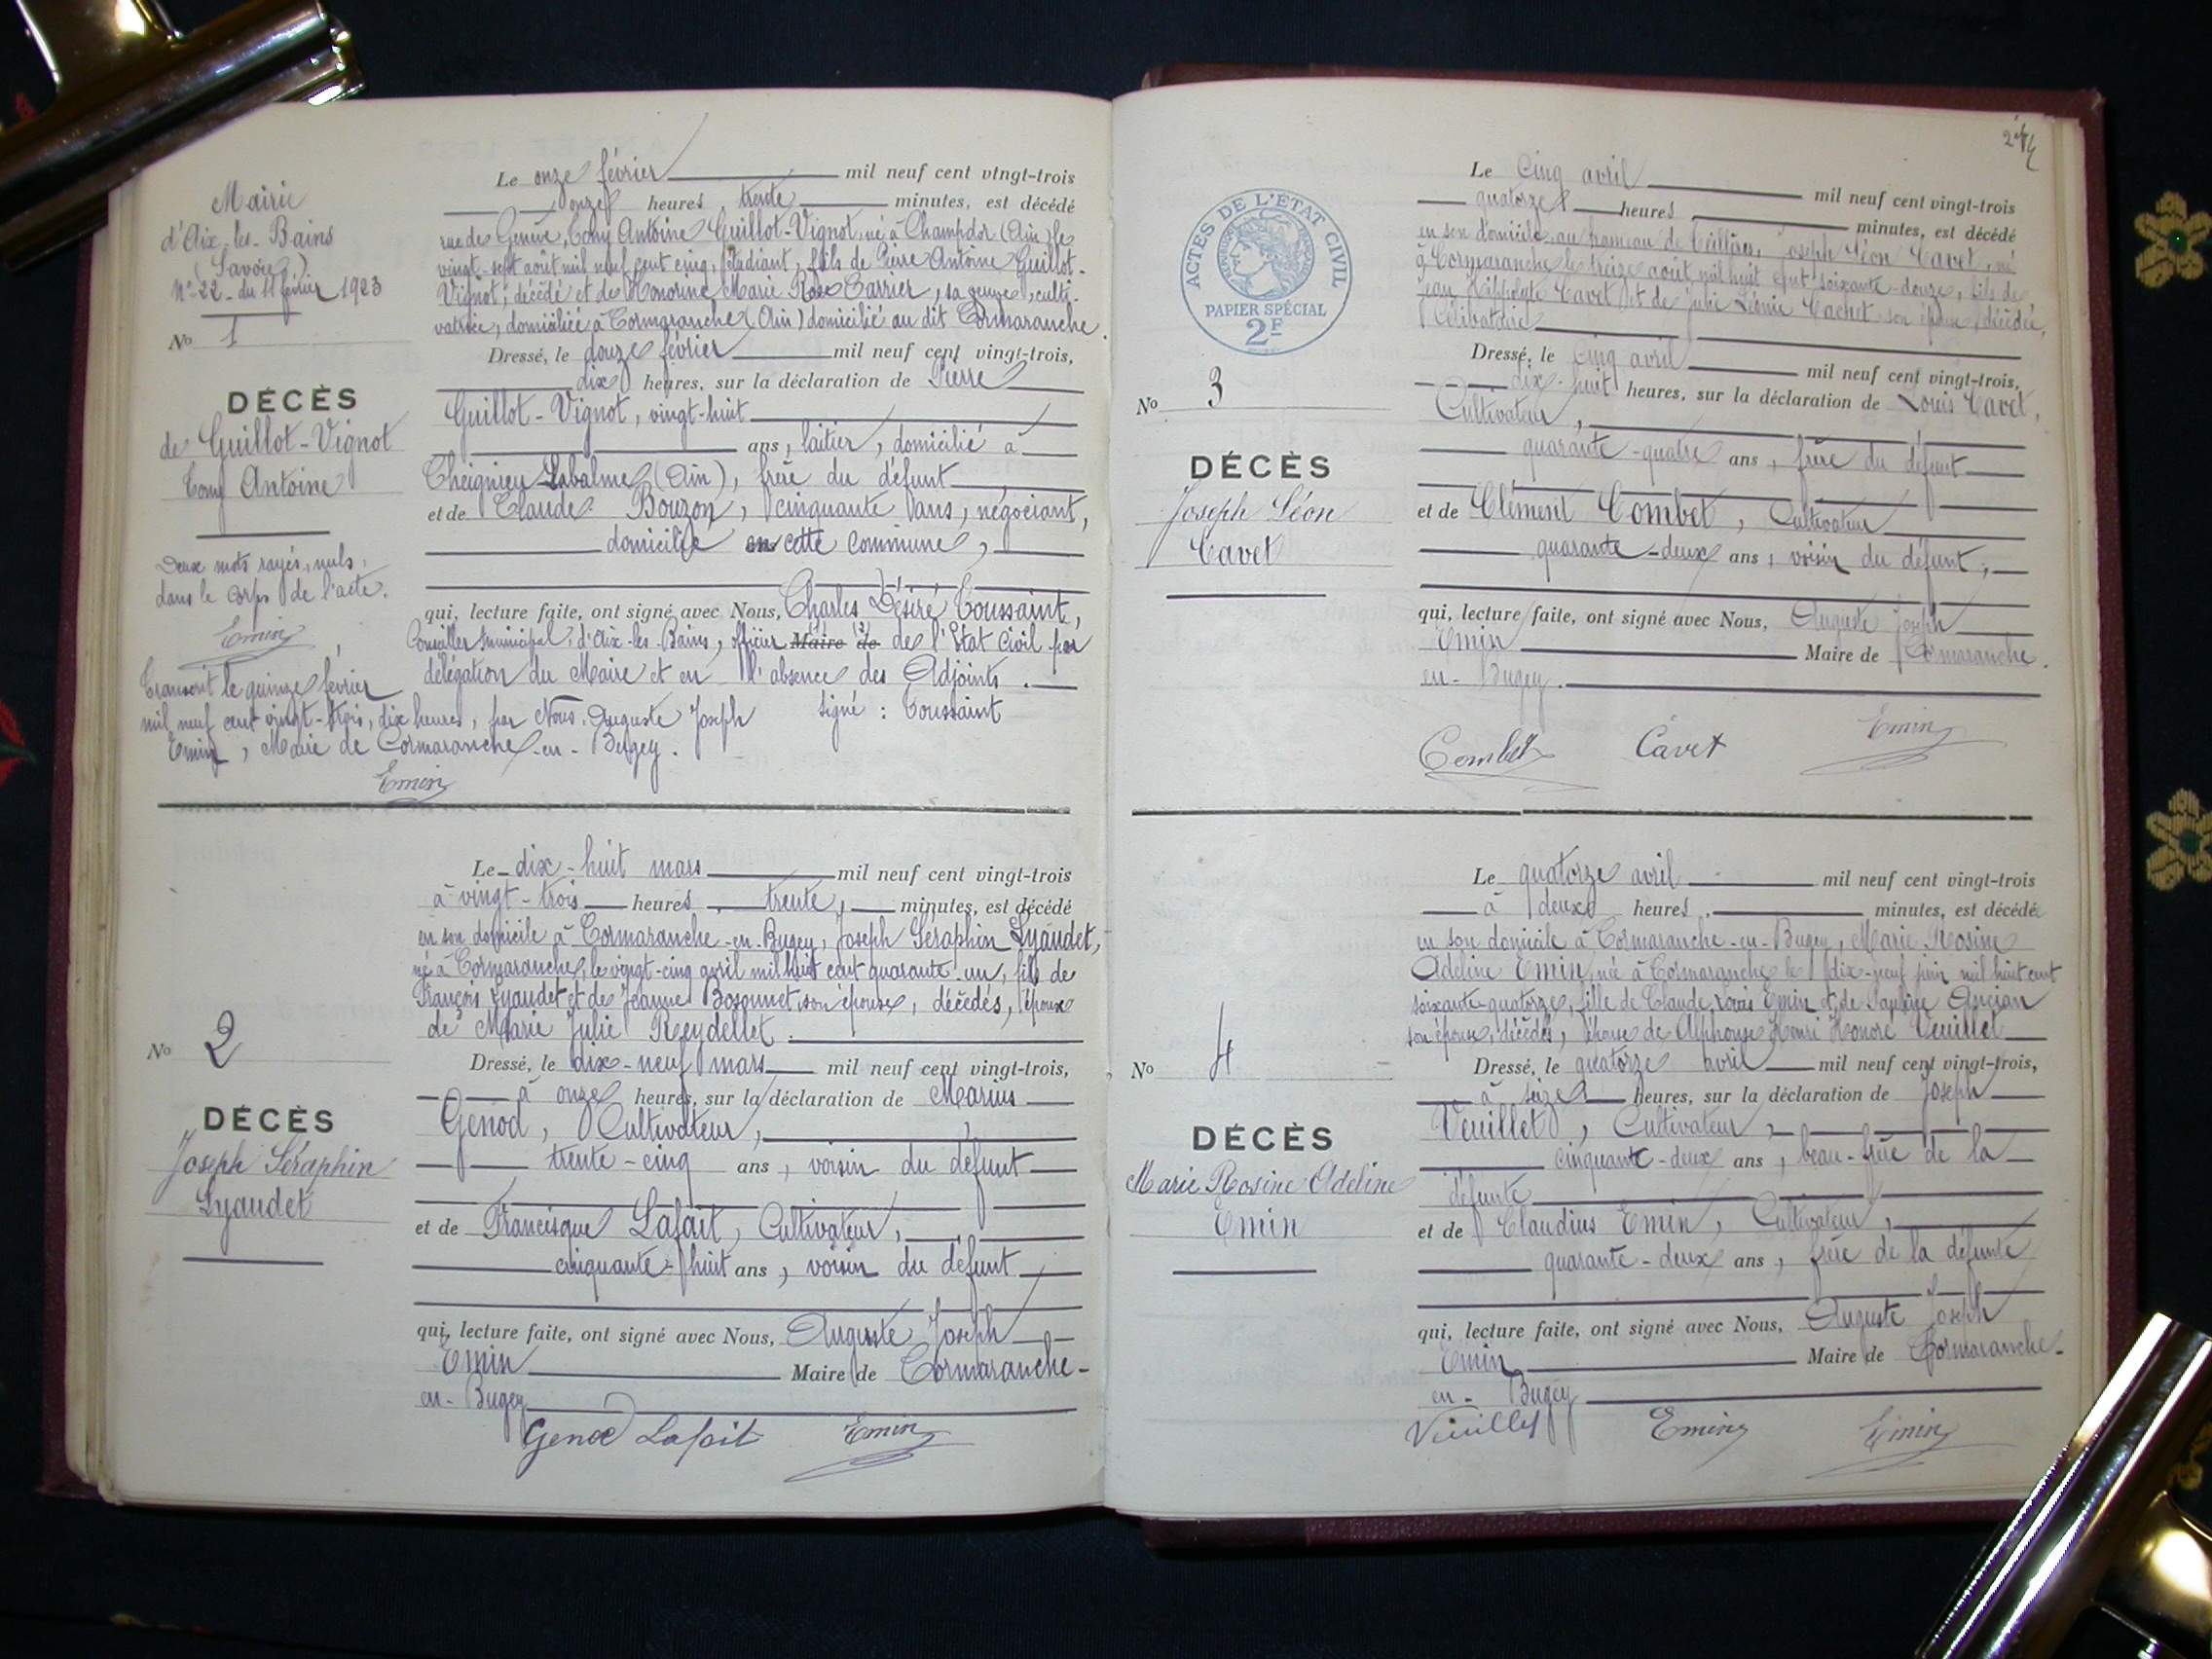 Mairie
d'Aix-les-Bains
(Savoie)
No-22-du 11 février 1923
No 1
DÉCÈS
de Guillot-Vignot
Tony Antoine
Deux mots rayés, nuls,
dans le corps de l'acte.
Emin
Le onze février mil neuf cent vingt-trois
onze heures trente minutes, est décédé
rue de Genève, Tony Antoine Guillot-Vignot, né à Champdor (Ain) le
vingt-sept août mil neuf cent cinq, étudiant, fils de Pierre Antoine Guillot-
Vignot, décédé et de Honorine Marie Rose Carrier, sa veuve, culti-
vatrice, domiciliée à Cormaranche (Ain) domicilié au dit Cormaranche.
Dressé, le douze février mil neuf cent vingt-trois,
dix heures, sur la déclaration de Pierre
Guillot-Vignot, vingt-huit
ans, laitier, domicilié à
Cheignieu Labalme (Ain), frère du défunt
et de Claude Bouzon, cinquante ans, négociant,
domicilié en cette commune,
qui, lecture faite, ont signé avec Nous, Charles Désiré Toussaint,
Conseiller municipal d'Aix-les-Bains, officier Maire de de l'Etat Civil par
délégation du Maire et en l'absence des Adjoints.
signé : Toussaint
Transcrit le quinze février
mil neuf cent vingt-trois, dix heures, par Nous, Auguste Joseph
Emin, Maire de Cormaranche-en-Bugey.
Emin
No 2
DÉCÈS
Joseph Séraphin
Lyaudet
Le dix-huit mars mil neuf cent vingt-trois
à vingt-trois heures trente, minutes, est décédé
en son domicile à Cormaranche-en-Bugey, Joseph Séraphin Lyaudet,
né à Cormaranche, le vingt-cinq avril mil huit cent quarante-un, fils de
François Lyaudet et de Jeanne Bosonnet son épouse, décédés, époux
de Marie Julie Reydellet.
Dressé, le dix-neuf mars mil neuf cent vingt-trois,
à onze heures, sur la déclaration de Marius
Genod, Cultivateur,
trente-cinq ans, voisin du défunt
et de Francisque Lafait, Cultivateur,
cinquante-huit ans, voisin du défunt
qui, lecture faite, ont signé avec Nous, Auguste Joseph
Emin Maire de Cormaranche-
en-Bugey
Genod Lafait Emin
ACTES DE L'ÉTAT CIVIL
PAPIER SPÉCIAL
2F
No 3
DÉCÈS
Joseph Léon
Cavet
Le Cinq avril mil neuf cent vingt-trois
quatorze heures minutes, est décédé
en son domicile, au hameau de Joseph Léon Cavet, né
à Cormaranche le treize août mil huit cent soixante-douze, fils de
Jean Hippolyte Cavet et de Julie Léonie Cachet son épouse, décédée,
Célibataire
Dressé, le cinq avril mil neuf cent vingt-trois,
dix-huit heures, sur la déclaration de Louis Cavet,
Cultivateur,
quarante-quatre ans, frère du défunt
et de Clément Combet, Cultivateur
quarante-deux ans, voisin du défunt,
qui, lecture faite, ont signé avec Nous, Auguste Joseph
Emin Maire de Cormaranche.
en-Bugey.
Combet Cavet Emin
No 4
DÉCÈS
Marie Rosine Adeline
Emin
Le quatorze avril mil neuf cent vingt-trois
à deux heures minutes, est décédé
en son domicile à Cormaranche-en-Bugey, Marie Rosine
Adeline Emin, née à Cormaranche le dix-neuf juin mil huit cent
soixante-quatorze, fille de Claude Louis Emin et de Pauline Ancian
son épouse, décédés, épouse de Alphonse Henri Honoré Veuillet
Dressé, le quatorze avril mil neuf cent vingt-trois,
à seize heures, sur la déclaration de Joseph
Veuillet, Cultivateur,
cinquante-deux ans, beau-frère de la
défunte
et de Claudius Emin, Cultivateur,
quarante-deux ans, frère de la défunte
qui, lecture faite, ont signé avec Nous, Auguste Joseph
Emin Maire de Cormaranche-
en-Bugey
Veuillet Emin Emin